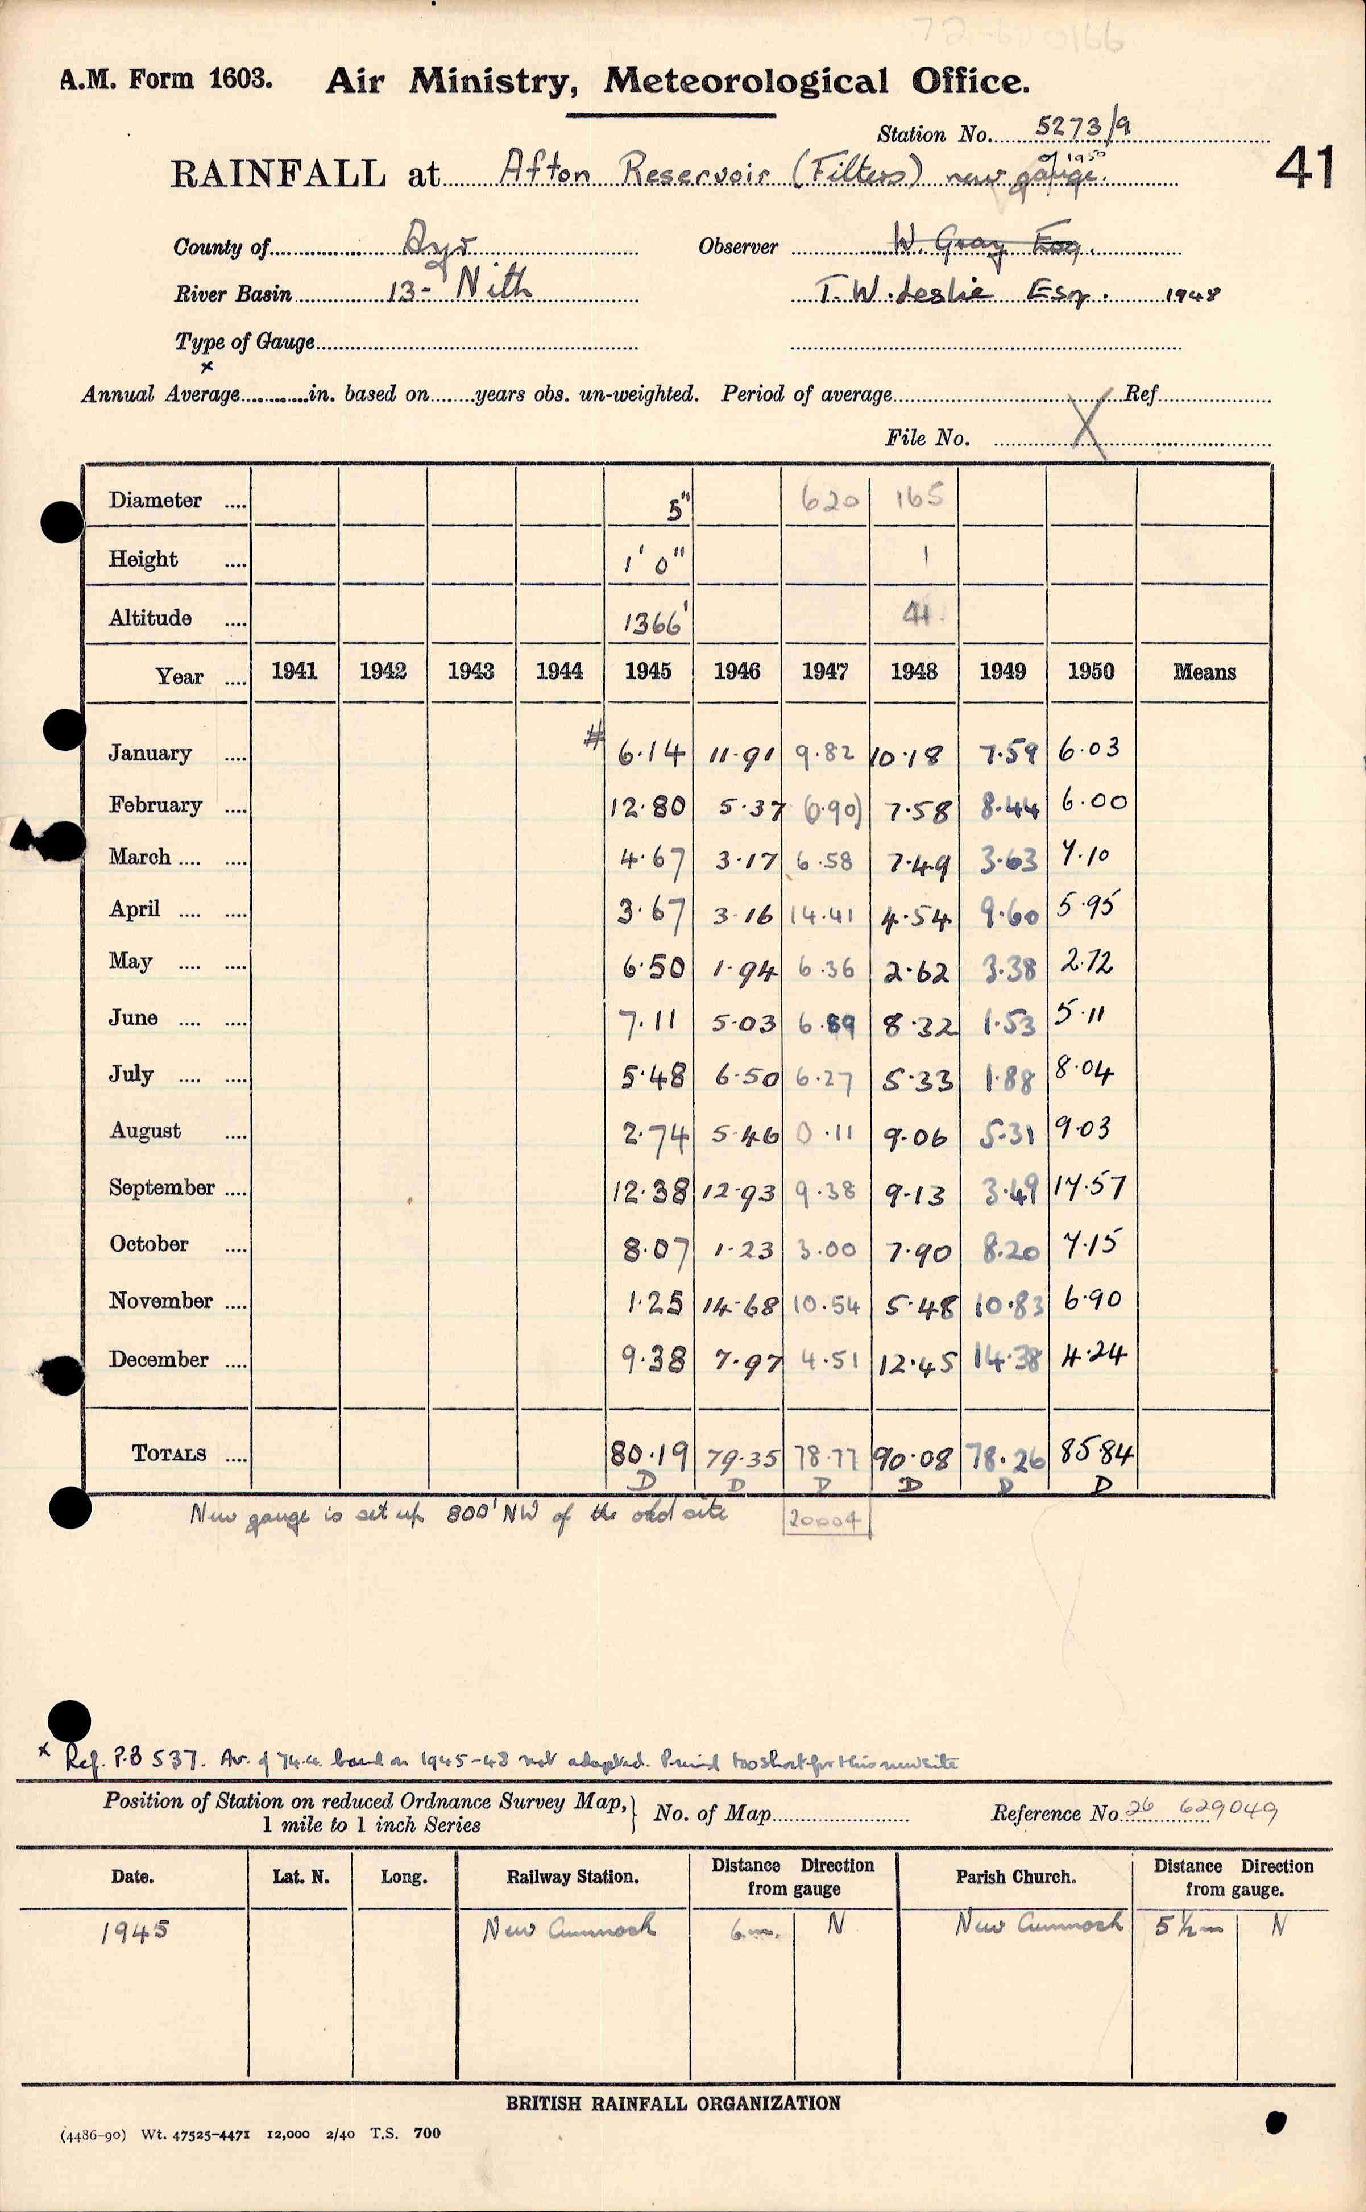 72-620166
A.M. Form 1603. Air Ministry, Meteorological Office.
Station No. 5273/9
of 1950
RAINFALL at Afton Reservoir (Filters) new gauge. 41
County of Ayr Observer W. Gray Esq.
River Basin 13- Nith T. W. Leslie Esq. 1948
Type of Gauge
x
Annual Average in. based on years obs. un-weighted. Period of average Ref
File No. X
Diameter .... 5" 620 165
Height .... 1' 0" 1
Altitude .... 1366' 41
Year .... 1941 1942 1943 1944 1945 1946 1947 1948 1949 1950 Means
January .... # 6.14 11.91 9.82 10.18 7.59 6.03
February .... 12.80 5.37 (0.90) 7.58 8.44 6.00
March .... .... 4.67 3.17 6.58 7.49 3.63 7.10
April .... .... 3.67 3.16 14.41 4.54 9.60 5.95
May .... .... 6.50 1.94 6.36 2.62 3.38 2.72
June .... .... 7.11 5.03 6.89 8.32 1.53 5.11
July .... .... 5.48 6.50 6.27 5.33 1.88 8.04
August .... 2.74 5.46 0.11 9.06 5.31 9.03
September .... 12.38 12.93 9.38 9.13 3.49 17.57
October .... 8.07 1.23 3.00 7.90 8.20 7.15
November .... 1.25 14.68 10.54 5.48 10.83 6.90
December .... 9.38 7.97 4.51 12.45 14.38 4.24
TOTALS .... 80.19 79.35 78.77 90.08 78.26 85.84
D D D D D D
New gauge is set up 800' NW of the old site 20004
x Ref. P.B 537. Av. of 74.4 based on 1945-48 not adopted. Period too short for this new site
Position of Station on reduced Ordnance Survey Map, } No. of Map Reference No 26 629049
1 mile to 1 inch Series
Date. Lat. N. Long. Railway Station. Distance Direction from gauge Parish Church. Distance Direction from gauge.
1945 New Cumnock 6m. N New Cumnock 5½m N
BRITISH RAINFALL ORGANIZATION
(4486-90) Wt. 47525-4471 12,000 2/40 T.S. 700